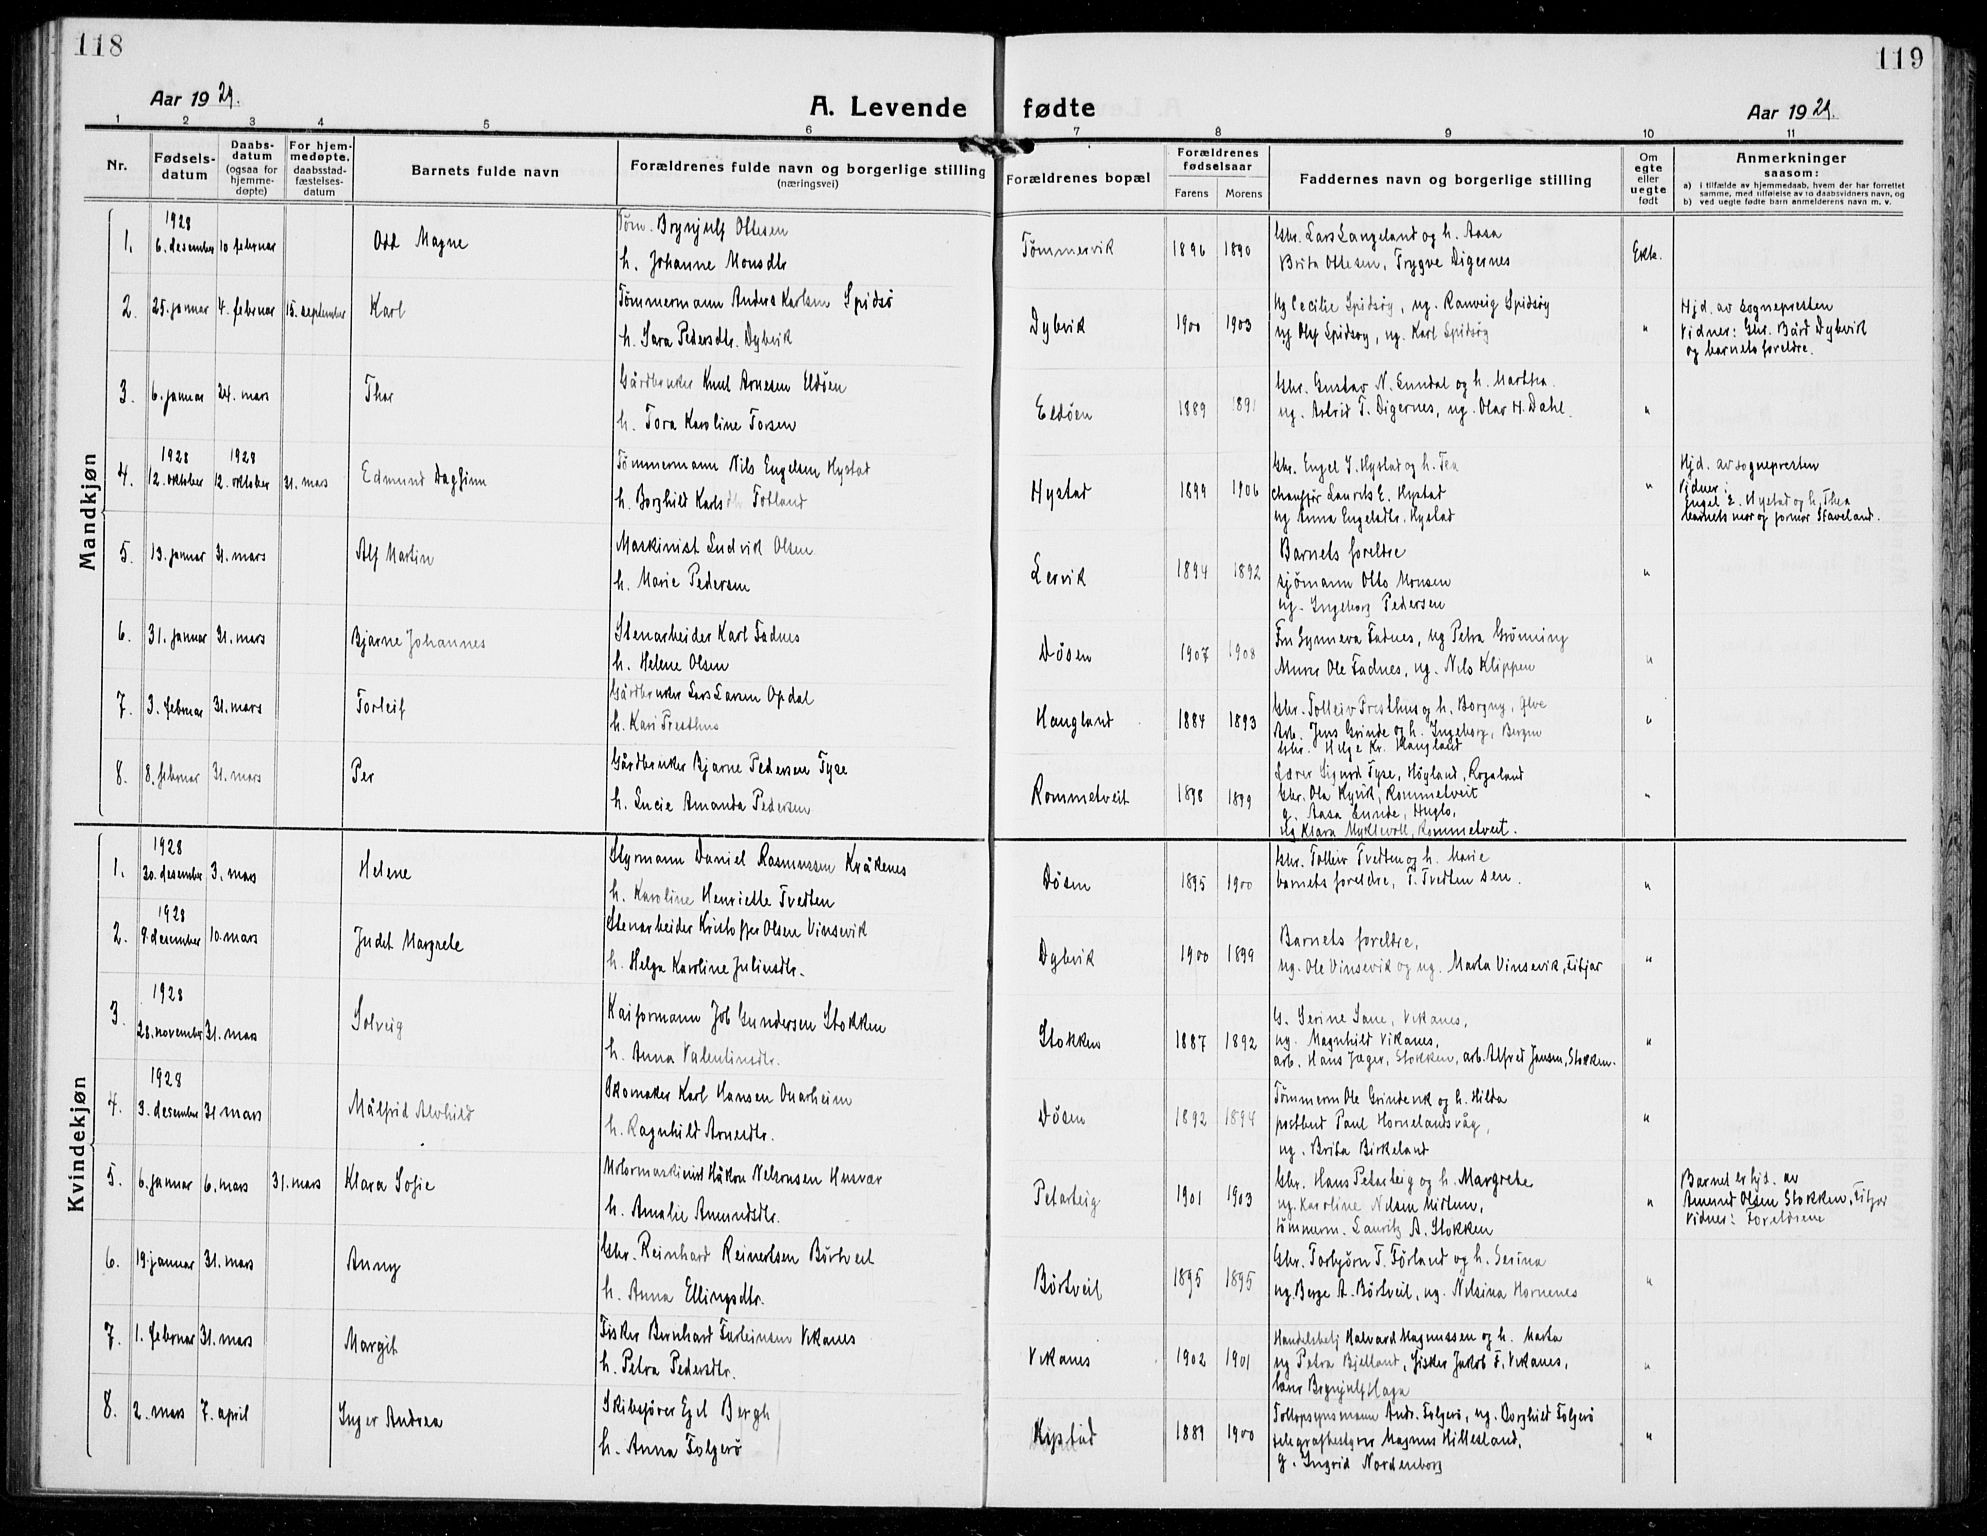 118
119
Aar 1929.
A. Levende fødte
Aar 1929.
1 2 3 4 5 6 7 8 9 10 11
Nr.
Fødsels-
datum
Daabs-
datum
(ogsaa for
hjemme-
døpte)
For hjem-
medøpte,
daabsstad-
fæstelses-
datum
Barnets fulde navn
Forældrenes fulde navn og borgerlige stilling
(næringsvei)
Forældrenes bopæl
Forældrenes
fødselsaar
Farens Morens
Faddernes navn og borgerlige stilling
Om
egte
eller
uegte
født
Anmerkninger
saasom:
a) i tilfælde av hjemmedaab, hvem der har forrettet
samme, med tilføielse av to daabsvidners navn, og
b) ved uegte fødte barn anmelderens navn m. v.
Mandkjøn
1928
1. 6. desember 10 februar Odd Magne
Tøm. Brynjulf Ottesen
h. Johanne Monsdtr
Tømmervik 1896 1890
Gbr. Lars Langeland og h. Aasa
Brita Ottesen, Trygve Digernes
Ekte.
2. 25. januar 4. februar 15. september Karl
Tømmermann Anders Karlsen Spidsø
h. Sara Pedersdtr. Dybvik
Dybvik 1900 1903
Ug Cecilie Spidsøy, ug. Ranveig Spidsøy
ug Olaf Spidsøy, ug. Karl Spidsøy
"
Hjd. av sognepresten
Vidner: Gbr. Bård Dybvik
og barnets foreldre.
3. 6. januar 24. mars Thor
Gårdbruker Knut Arnesen Eldøen
h. Tora Karoline Torsen
Eldøen 1889 1891
Gbr. Gustav N. Lundal og h. Martha.
ug. Astrid T. Digernes, ug. Olav H. Dahl.
"
1928 1928
4. 12. oktober 12. oktober 31. mars Edmund Dagfinn
Tømmermann Nils Engelsen Hystad
h. Borghild Karlsdtr Totland
Hystad 1899 1906
Gbr. Engel J. Hystad og h. Tea
chauffør Laurits E. Hystad
ug Anna Engelsdtr. Hystad
"
Hjd. av sognepresten
Vidner:
Engel E. Hystad og h. Thea
barnets mor og jormor Staveland.
5. 13. januar 31. mars Alf Martin
Maskinist Ludvik Olsen
h. Marie Pedersen
Lervik 1894 1892
Barnets foreldre
sjømann Otto Monsen
ug. Ingeborg Pedersen
"
6. 31. januar 31. mars Bjarne Johannes
Stenarbeider Karl Fadnes
h. Helene Olsen
Døsen 1907 1908
Fru Synneva Fadnes, ug Petra Grønning
Murer Ole Fadnes, ug. Nils Klippen
"
7. 3. februar 31. mars Torleif
Gårdbruker Lars Larsen Opdal
h. Kari Presthus
Haugland 1884 1893
Gbr. Tolleiv Presthus og h. Borgny, Ølve
Arb. Jens Grinde og h. Ingeborg, Bergen
Gbr. Helge Kr. Haugland
"
8. 8. februar 31. mars Per
Gårdbruker Bjarne Pedersen Tyse
h. Lucie Amanda Pedersen
Rommetveit 1898 1899
Lærer Sigurd Tyse, Høyland, Rogaland
Gbr. Ola Kyvik, Rommetveit
g. Aasa Lunde, Huglo,
ug Klara Myklevoll, Rommetveit.
"
Kvindekjøn
1928
1. 30. desember 3. mars Helene
Styrmann Daniel Rasmussen Kråkenes
h. Karoline Henriette Tvedten
Døsen 1895 1900
Gbr. Tolleiv Tvedten og h. Marie
barnets foreldre, T. Tvedten sen.
"
1928
2. 9. desember 10. mars Judit Margrete
Stenarbeider Kristoffer Olsen Vinsevik
h. Helga Karoline Juliusdtr.
Dybvik 1900 1899
Barnets foreldre,
ug. Ole Vinsevik og ug. Marta Vinsevik, Fitjar
"
1928
3. 28. november 31. mars Solveig
Kaiformann Job Gundersen Stokken
h. Anna Valentinsdtr.
Stokken 1887 1892
G. Serine Sane, Vikanes,
ug. Magnhild Vikanes,
arb. Hans Jæger, Stokken, arb. Alfred Jansen, Stokken.
"
1928
4. 3. desember 31. mars Målfrid Alvhild
Skomaker Karl Hansen Onarheim
h. Ragnhild Arnesdtr.
Døsen 1892 1894
Tømmerm Ole Grindevik og h. Hilda
postbud Paul Hornelandsvåg,
ug. Brita Birkeland
"
5. 6. januar 6. mars 31. mars Klara Sofie
Motormaskinist Håkon Nelsonsen Husvær
h. Amalie Amundsdtr.
Petarteig 1901 1903
Gbr. Hans Petarteig og h. Margrete
ug. Karoline Nilsen Midtun,
tømmerm. Lauritz A. Stokken
"
Barnet er hjd. av
Amund Olsen Stokken, Fitjar
Vidner: Foreldrene
6. 19. januar 31. mars Anny
Gbr. Reinhard Reinertsen Børtveit
h. Anna Ellingsdtr.
Børtveit 1895 1895
Gbr. Torbjørn T. Førland og h. Serina
ug. Berge A. Børtveit, ug. Nilsina Hornenes
"
7. 1. februar 31. mars Margit
Fisker Bernhard Torleinsen Vikanes
h. Petra Pedersdtr.
Vikanes 1902 1901
Handelsbetj Halvard Magnussen og h. Marta
ug Petra Bjelland, fisker Jakob F. Vikanes,
lærer Brynjulf Haga
"
8. 2. mars 7. april Inger Andrea
Skibsfører Egel Bergh
h. Anna Folgerø
Hystad 1889 1900
Tollopsynsmann Andr. Folgerø, ug. Borghild Folgerø
telegrafbestyrer Magnus Hillestland,
g. Ingrid Nordenborg
"